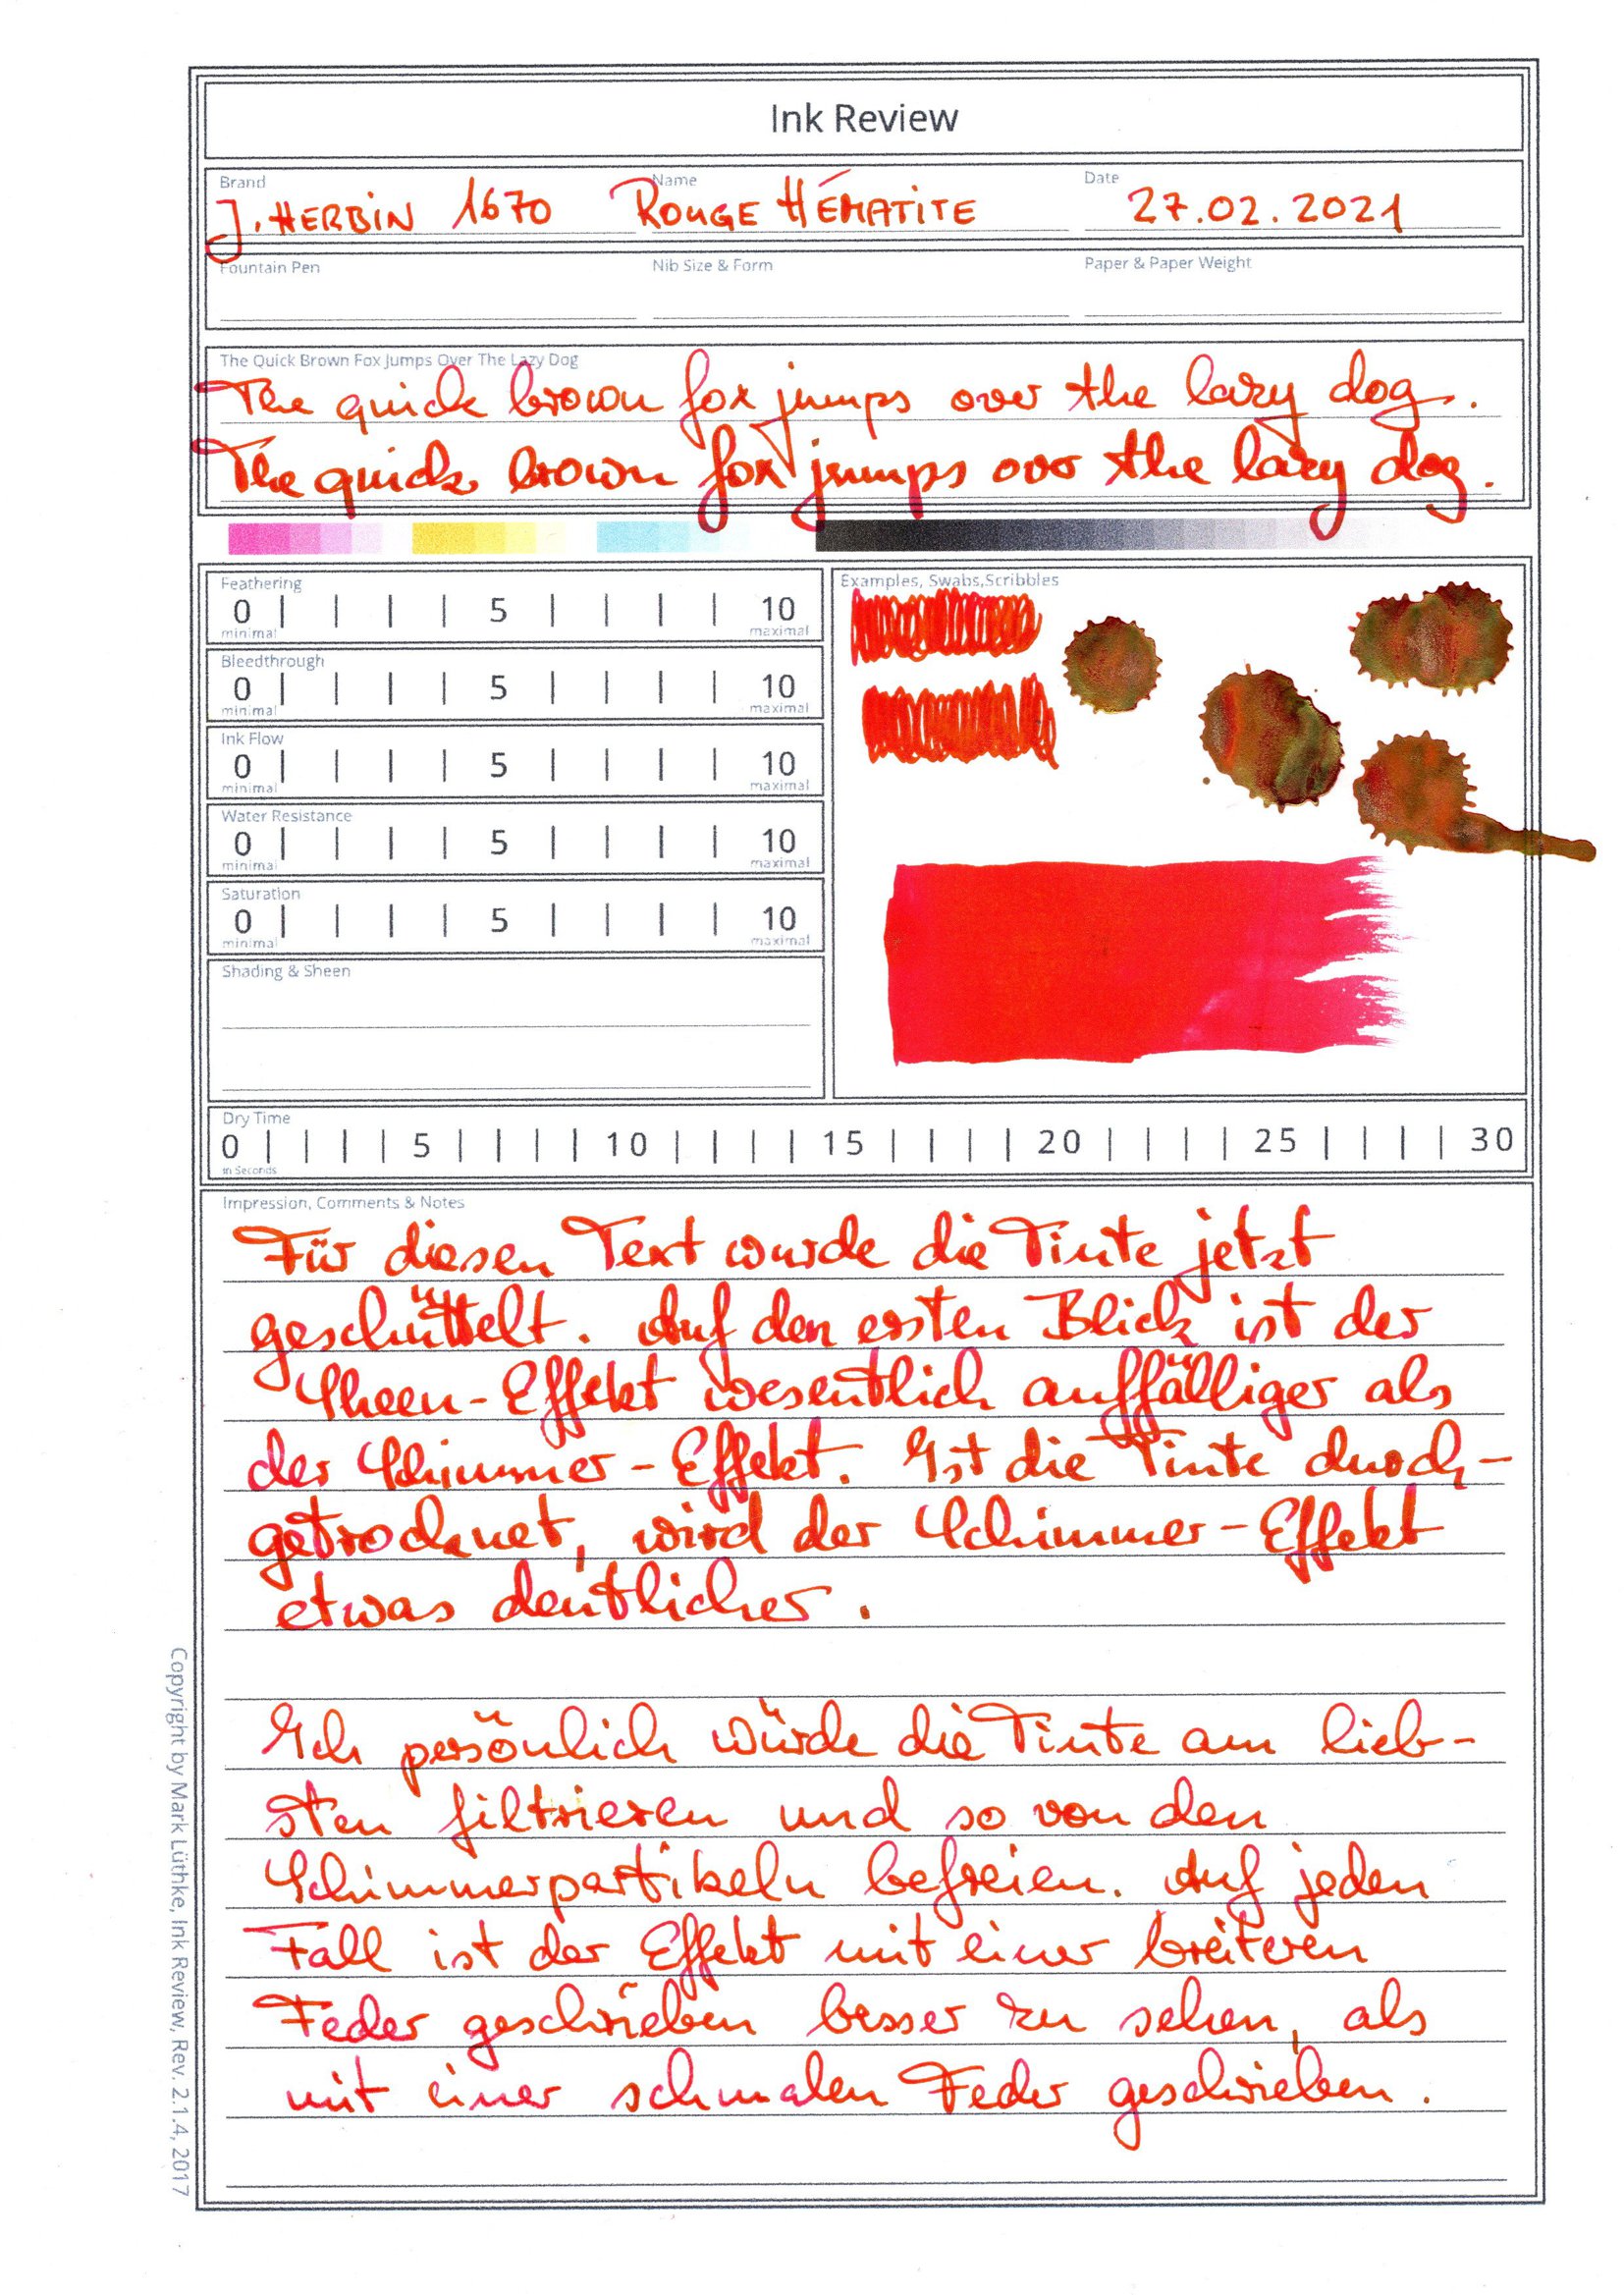 Ink Review
Brand Name Date
J. HERBIN 1670 ROUGE HÉMATITE 27.02.2021
Fountain Pen Nib Size & Form Paper & Paper Weight
The Quick Brown Fox Jumps Over The Lazy Dog
The quick brown fox jumps over the lazy dog.
The quick brown fox jumps over the lazy dog.
Feathering
0 | | | | 5 | | | | 10
minimal maximal
Bleedthrough
0 | | | | 5 | | | | 10
minimal maximal
Ink Flow
0 | | | | 5 | | | | 10
minimal maximal
Water Resistance
0 | | | | 5 | | | | 10
minimal maximal
Saturation
0 | | | | 5 | | | | 10
minimal maximal
Shading & Sheen
Examples, Swabs,Scribbles
Dry Time
0 | | | | 5 | | | | 10 | | | | 15 | | | | 20 | | | | 25 | | | | 30
in Seconds
Impression, Comments & Notes
Für diesen Text wurde die Tinte jetzt
geschüttelt. Auf den ersten Blick ist der
Sheen-Effekt wesentlich auffälliger als
der Schimmer-Effekt. Ist die Tinte durch-
getrocknet, wird der Schimmer-Effekt
etwas deutlicher.
Ich persönlich würde die Tinte am lieb-
sten filtrieren und so von den
Schimmerpartikeln befreien. Auf jeden
Fall ist der Effekt mit einer breiteren
Feder geschrieben besser zu sehen, als
mit einer schmalen Feder geschrieben.
Copyright by Mark Lüthke, Ink Review, Rev. 2.1.4, 2017